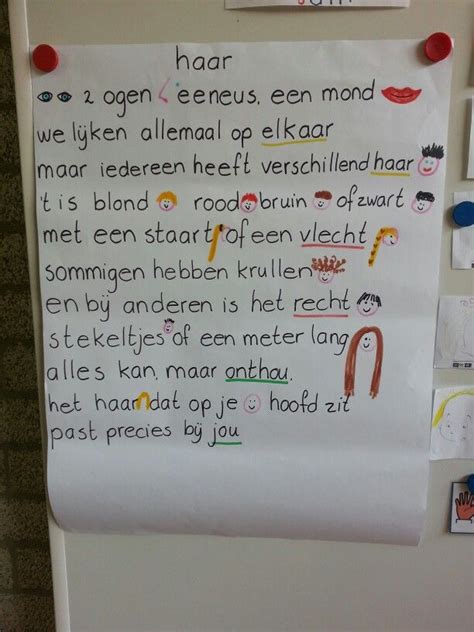 haar
2 ogen eeneus, een mond
we lijken allemaal op elkaar
maar iedereen heeft verschillend haar
't is blond rood bruin of zwart
met een staart of een vlecht
sommigen hebben krullen
en bij anderen is het recht
stekeltjes of een meter lang
alles kan, maar onthou,
het haar dat op je hoofd zit
past precies bij jou